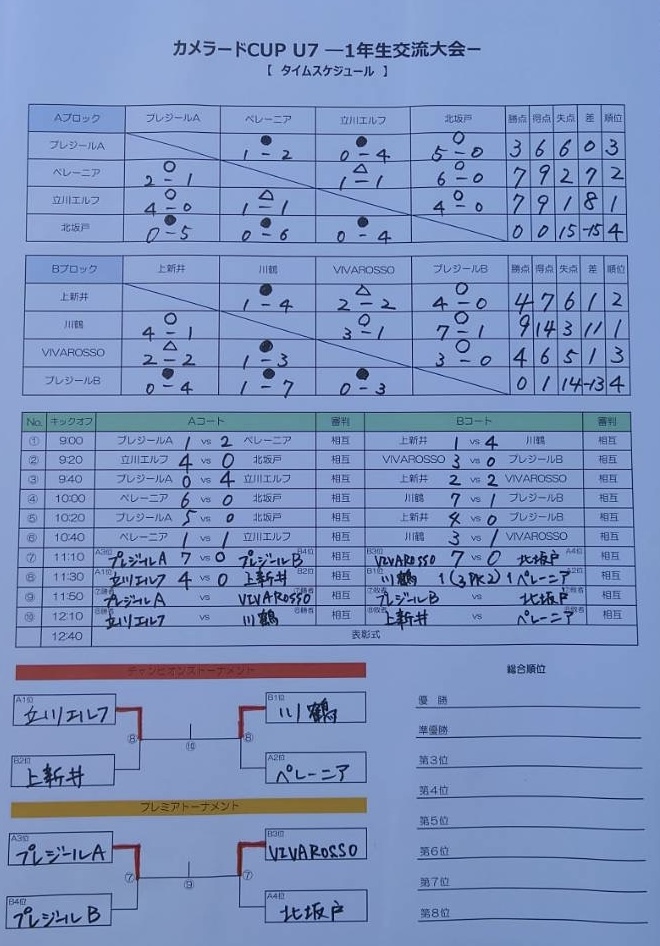 カメラードCUP U7 ―1年生交流大会―
【 タイムスケジュール 】
Aブロック プレジールA ペレーニア 立川エルフ 北坂戸 勝点 得点 失点 差 順位
プレジールA ● 1 - 2 ● 0 - 4 ○ 5 - 0 3 6 6 0 3
ペレーニア ○ 2 - 1 △ 1 - 1 ○ 6 - 0 7 9 2 7 2
立川エルフ ○ 4 - 0 △ 1 - 1 ○ 4 - 0 7 9 1 8 1
北坂戸 ● 0 - 5 ● 0 - 6 ● 0 - 4 0 0 15 -15 4
Bブロック 上新井 川鶴 VIVAROSSO プレジールB 勝点 得点 失点 差 順位
上新井 ● 1 - 4 △ 2 - 2 ○ 4 - 0 4 7 6 1 2
川鶴 ○ 4 - 1 ○ 3 - 1 ○ 7 - 1 9 14 3 11 1
VIVAROSSO △ 2 - 2 ● 1 - 3 ○ 3 - 0 4 6 5 1 3
プレジールB ● 0 - 4 ● 1 - 7 ● 0 - 3 0 1 14 -13 4
No. キックオフ Aコート 審判 Bコート 審判
① 9:00 プレジールA 1 vs 2 ペレーニア 相互 上新井 1 vs 4 川鶴 相互
② 9:20 立川エルフ 4 vs 0 北坂戸 相互 VIVAROSSO 3 vs 0 プレジールB 相互
③ 9:40 プレジールA 0 vs 4 立川エルフ 相互 上新井 2 vs 2 VIVAROSSO 相互
④ 10:00 ペレーニア 6 vs 0 北坂戸 相互 川鶴 7 vs 1 プレジールB 相互
⑤ 10:20 プレジールA 5 vs 0 北坂戸 相互 上新井 4 vs 0 プレジールB 相互
⑥ 10:40 ペレーニア 1 vs 1 立川エルフ 相互 川鶴 3 vs 1 VIVAROSSO 相互
⑦ 11:10 A3位 プレジールA 7 vs 0 プレジールB B4位 相互 B3位 VIVAROSSO 7 vs 0 北坂戸 A4位 相互
⑧ 11:30 A1位 立川エルフ 4 vs 0 上新井 B2位 相互 B1位 川鶴 1 (3 PK 2) 1 ペレーニア A2位 相互
⑨ 11:50 ⑦勝者 プレジールA vs VIVAROSSO ⑦勝者 相互 ⑦敗者 プレジールB vs 北坂戸 ⑦敗者 相互
⑩ 12:10 ⑧勝者 立川エルフ vs 川鶴 ⑧勝者 相互 ⑧敗者 上新井 vs ペレーニア ⑧敗者 相互
12:40 表彰式
チャンピオンズトーナメント
総合順位
A1位 立川エルフ B1位 川鶴
優 勝
⑧ ⑩ ⑧
準優勝
B2位 上新井 A2位 ペレーニア
第3位
第4位
プレミアトーナメント
第5位
A3位 プレジールA B3位 VIVAROSSO
第6位
⑦ ⑨ ⑦
第7位
B4位 プレジールB A4位 北坂戸
第8位